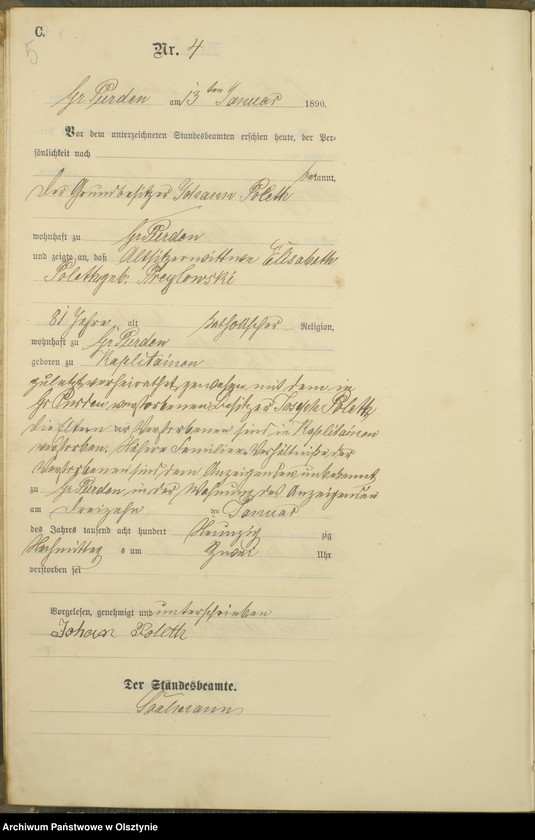 C.
5
Nr. 4
Gr Purden am 13ten Januar 1890.
Vor dem unterzeichneten Standesbeamten erschien heute, der Per-
sönlichkeit nach
bekannt,
der Grundbesitzer Johann Poleth
wohnhaft zu Gr Purden
und zeigte an, daß Altsitzerwittwe Elisabeth
Poleth geb. Preylowski
81 Jahre alt katholischer Religion,
wohnhaft zu Gr Purden
geboren zu Kaplitainen
zuletzt verheirathet gewesen mit dem in
Gr Purden verstorbenen Besitzer Joseph Poleth
die Eltern der Verstorbenen sind in Kaplitainen
verstorben. Nähere Familien Verhältniße der
Verstorbenen sind dem Anzeigenden unbekannt
zu Gr Purden, in der Wohnung des Anzeigenden
am dreizehn ten Januar
des Jahres tausend acht hundert Neunzig zig
Nachmittag s um Zwei Uhr
verstorben sei
Vorgelesen, genehmigt und unterschrieben
Johan Poleth
Der Standesbeamte.
Archiwum Państwowe w Olsztynie